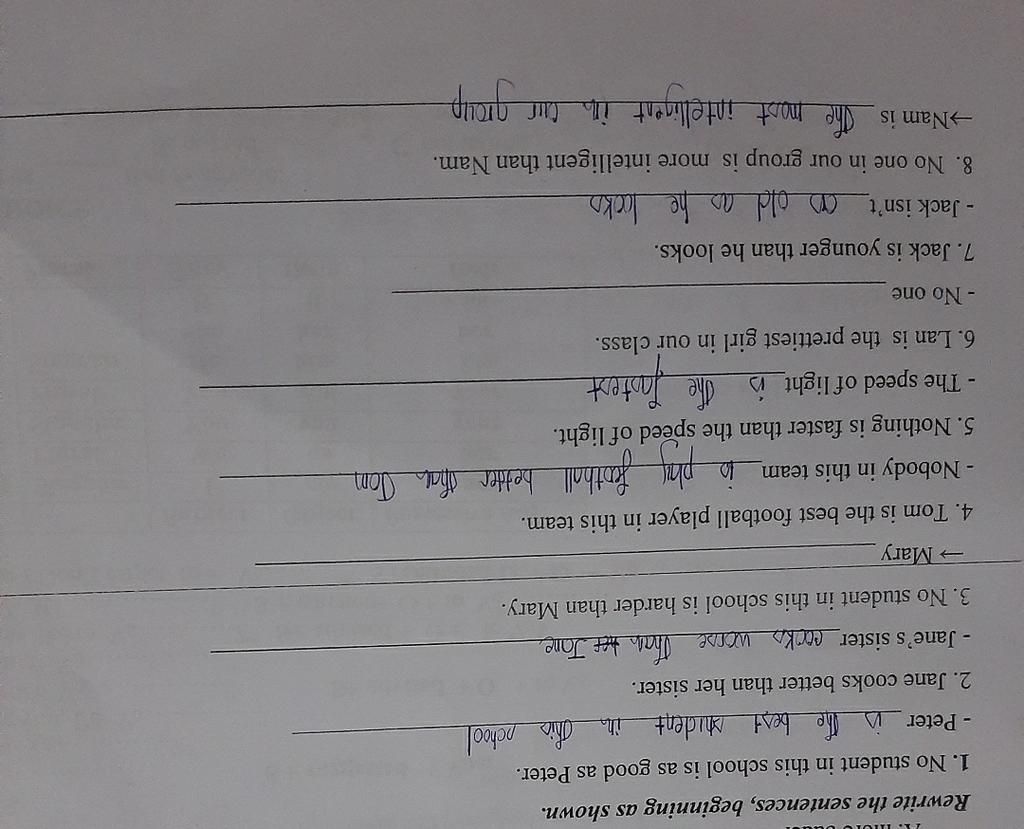 Rewrite the sentences, beginning as shown.
1. No student in this school is as good as Peter.
- Peter is the best student in this school
2. Jane cooks better than her sister.
- Jane's sister cooks worse than her Jane
3. No student in this school is harder than Mary.
→ Mary
4. Tom is the best football player in this team.
- Nobody in this team is play football better than Tom
5. Nothing is faster than the speed of light.
- The speed of light is the fastest
6. Lan is the prettiest girl in our class.
- No one
7. Jack is younger than he looks.
- Jack isn't as old as he looks
8. No one in our group is more intelligent than Nam.
→ Nam is the most intelligent in our group